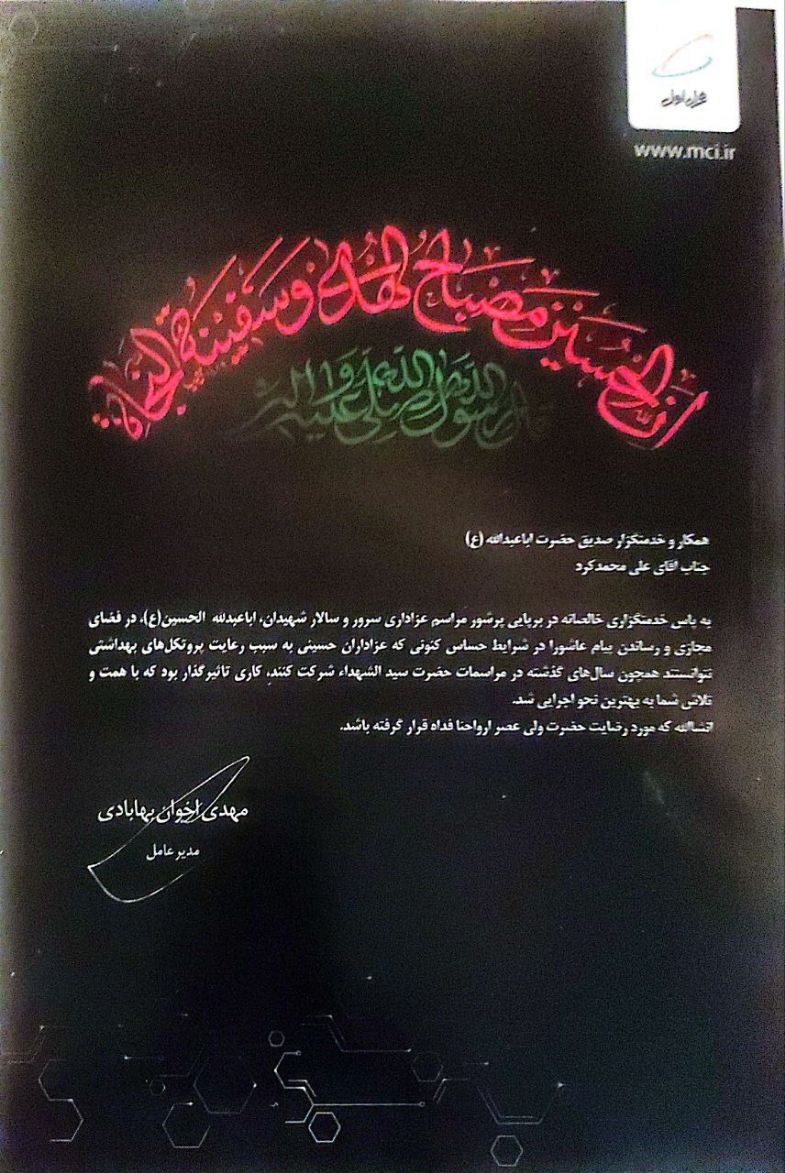 همراه اول
www.mci.ir
ان الحسین مصباح الهدی و سفینة النجاة
قال رسول الله صلی الله علیه و آله
همکار و خدمتگزار صدیق حضرت اباعبدالله (ع)
جناب آقای علی محمدکرد
به پاس خدمتگزاری خالصانه در برپایی پرشور مراسم عزاداری سرور و سالار شهیدان، اباعبدلله الحسین(ع)، در فضای
مجازی و رساندن پیام عاشورا در شرایط حساس کنونی که عزاداران حسینی به سبب رعایت پروتکل‌های بهداشتی
نتوانستند همچون سال‌های گذشته در مراسمات حضرت سید الشهداء شرکت کنند، کاری تاثیرگذار بود که با همت و
تلاش شما به بهترین نحو اجرایی شد.
انشاالله که مورد رضایت حضرت ولی عصر ارواحنا فداه قرار گرفته باشد.
مهدی اخوان بهابادی
مدیر عامل